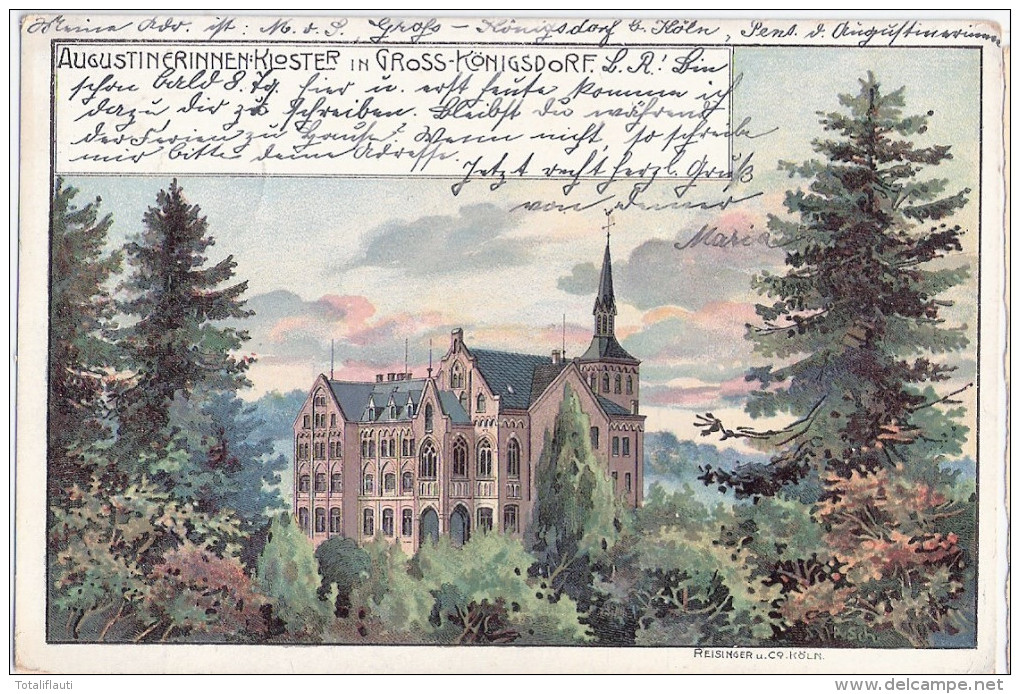 Meine Adr. ist: M. v. S., Gross-Königsdorf b. Köln, Pens. d. Augustinerinnen
AUGUSTINERINNEN-KLOSTER IN GROSS-KÖNIGSDORF. L. R.! Bin
schon bald 8 Tg. hier u. erst heute komme ich
dazu dir zu schreiben. Bleibst du während
der Ferien zu Hause? Wenn nicht, so schreibe
mir bitte deine Adresse.
Jetzt recht herzl. Gruß
von deiner
Maria
REISINGER u. CO. KÖLN.
© Totaliflauti
http://www.delcampe.net